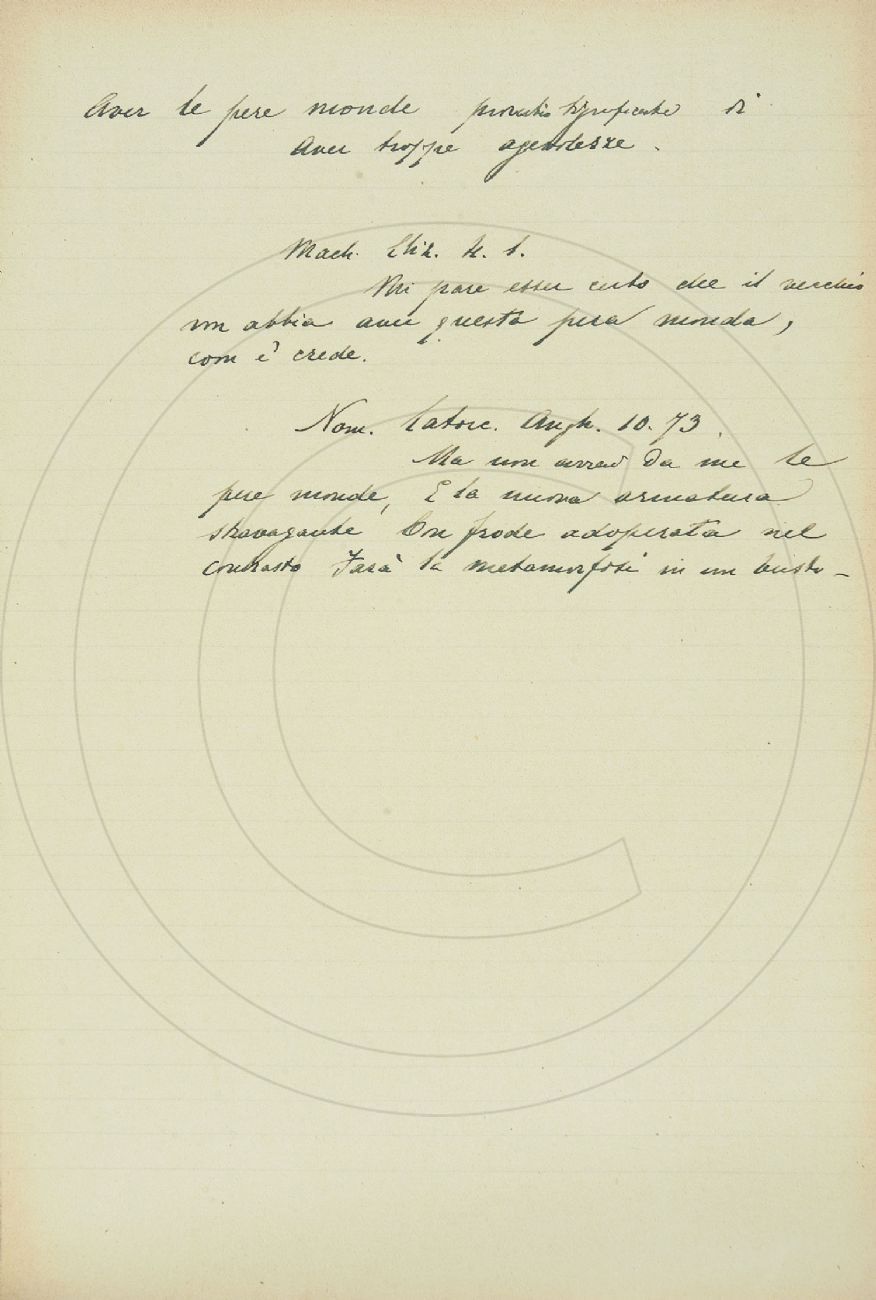 Aver le pere monde proverbio significante di
aver troppe agevolezze.
Mach. Cliz. 4. 1.
Mi pare esser certo che il vecchio
non abbia aver questa pera monda,
com' e' crede.
Nom. Catorc. Angh. 10. 73.
Ma non avrai da me le
pere monde, E la nuova armatura
stravagante Con frode adoperata nel
contrasto Farà la metamorfosi in un basto_